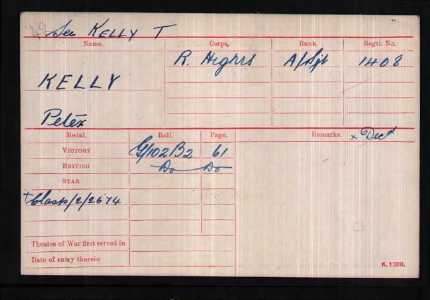 See KELLY T
Name. Corps. Rank. Regtl. No.
KELLY R. Highrs A/Sjt 1408
Peter
Medal. Roll. Page. Remarks. x Decd
VICTORY G/102B2 61
BRITISH Do Do
STAR
Clasp/2/2674
Theatre of War first served in
Date of entry therein K. 1380.